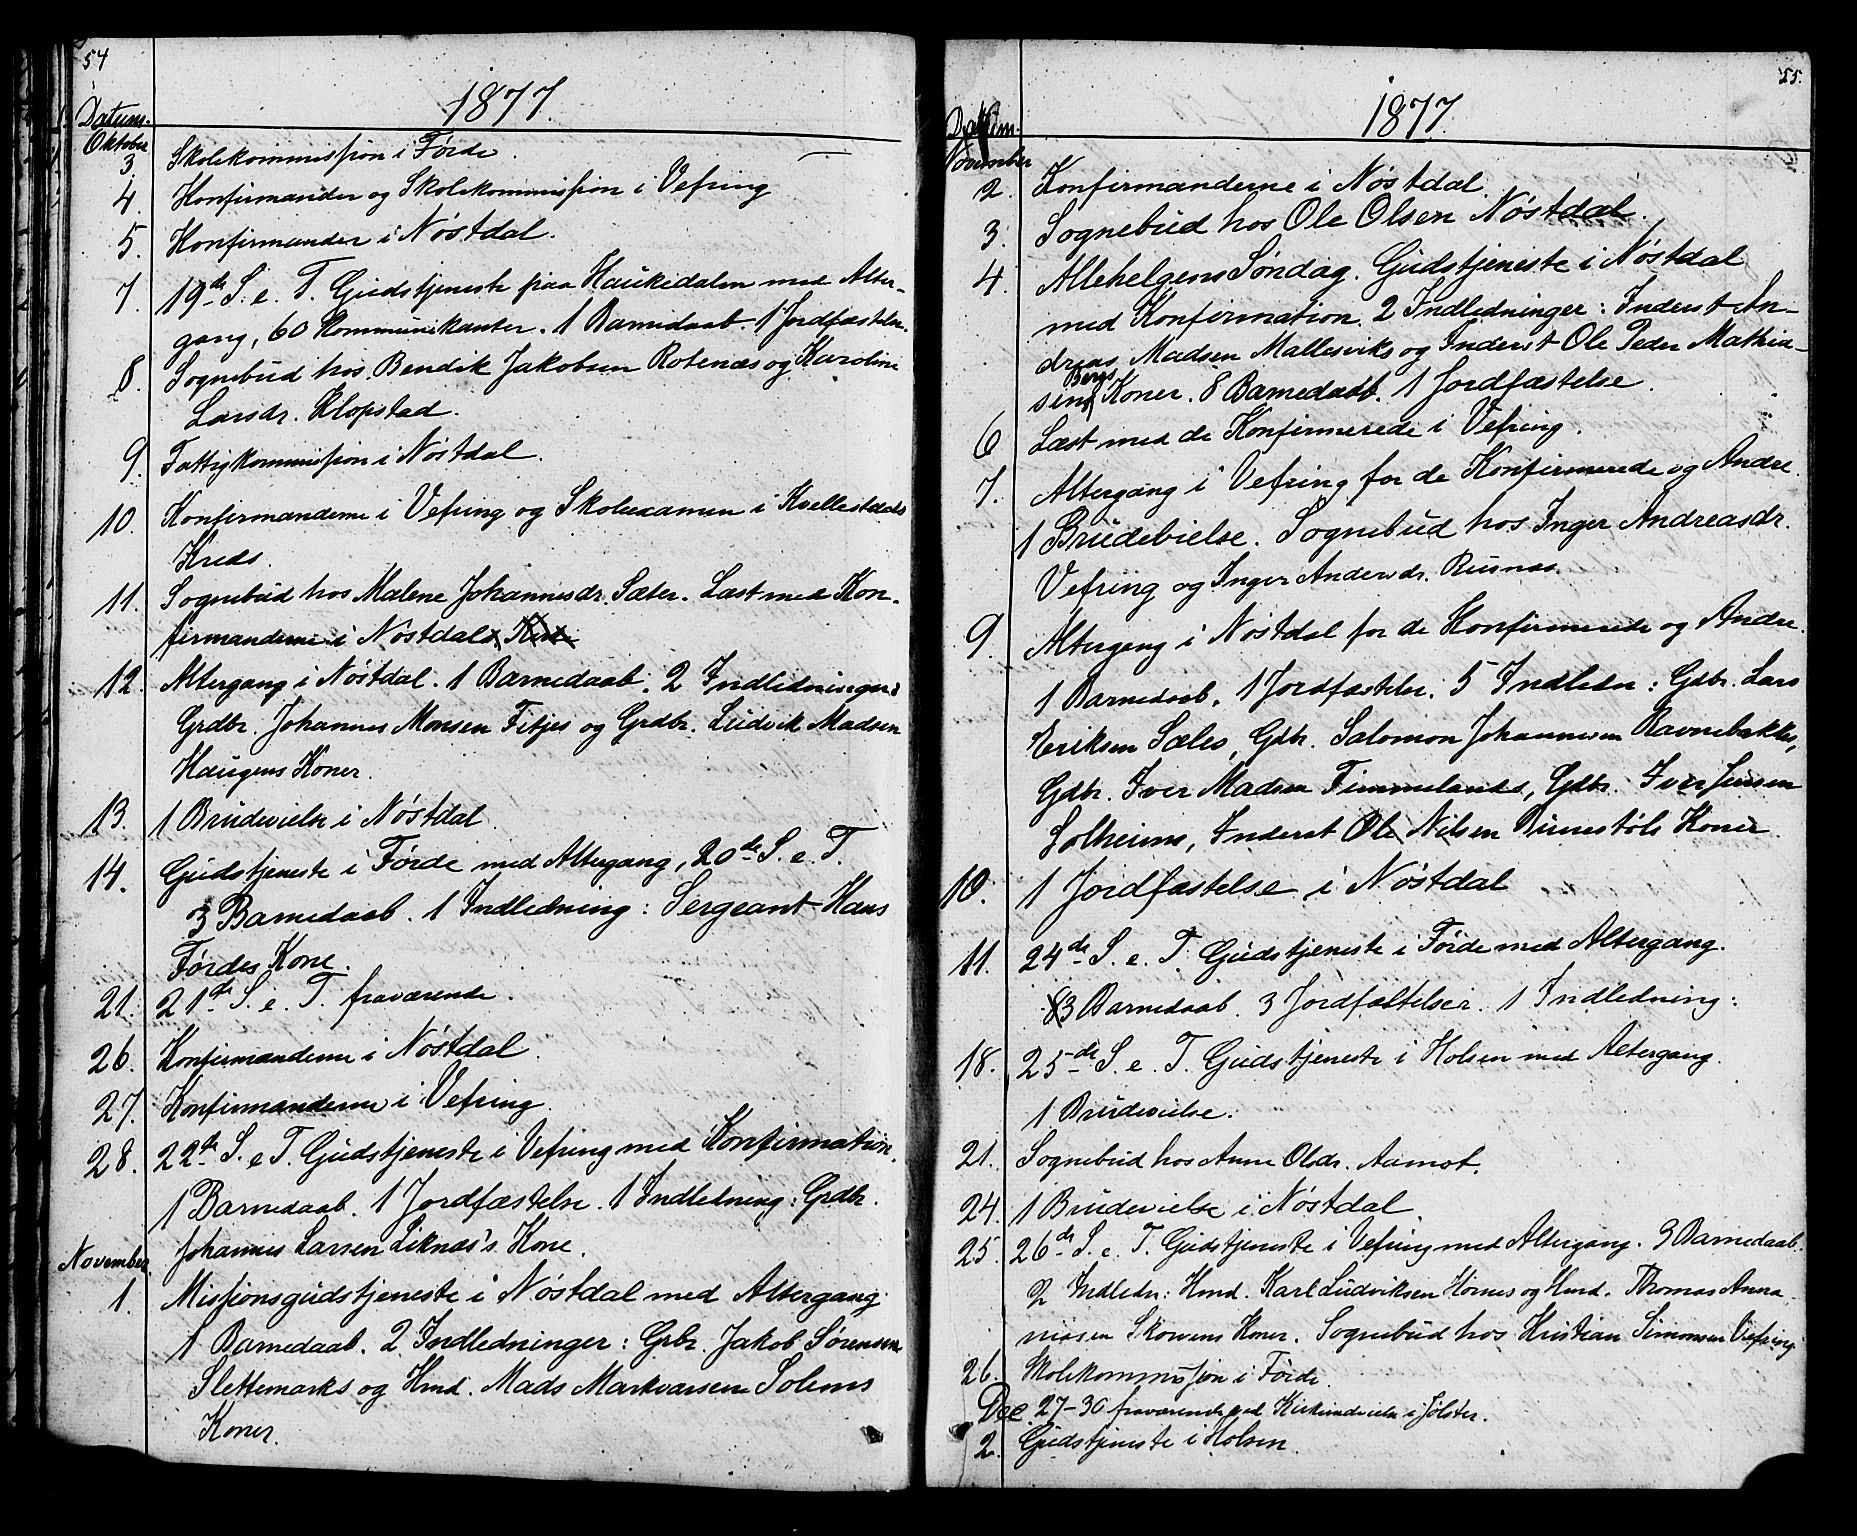 54
1877.
Datum.
Oktober
3. Skolekommission i Førde.
4. Konfirmander og Skolekommission i Vefring
5. Konfirmander i Nøstdal.
7. 19de S. e. T. Gudstjeneste paa Haukedalen med Alter-
gang, 60 Kommunikanter. 1 Barnedaab. 1 Jordfæstelse.
8. Sognebud hos Bendik Jakobsen Rotenæs og Karoline
Larsdr. Klopstad.
9. Fattigkommission i Nøstdal.
10. Konfirmanderne i Vefring og Skoleexamen i Kvellestads
Kreds.
11. Sognebud hos Malene Johannesdr. Sæter. Læst med Kon-
firmanderne i Nøstdal.
12. Altergang i Nøstdal. 1 Barnedaab. 2 Indledninger:
Grdbr. Johannes Monsen Fitjes og Grdbr. Ludvik Madsen
Haugens Koner.
13. 1 Brudevielse i Nøstdal.
14. Gudstjeneste i Førde med Altergang, 20de S. e. T.
3 Barnedaab. 1 Indledning: Sergeant Hans
Førdes Kone.
21. 21de S. e. T. fraværende.
26. Konfirmanderne i Nøstdal.
27. Konfirmanderne i Vefring.
28. 22de S. e T. Gudstjeneste i Vefring med Konfirmation.
1 Barnedaab. 1 Jordfæstelse. 1 Indledning: Grdbr.
Johannes Larsen Liknæs's Kone.
November
1. Missionsgudstjeneste i Nøstdal med Altergang.
1 Barnedaab. 2 Indledninger: Grbr. Jakob Sørensen
Slettemarks og Hmd. Mads Markvarsen Solems
Koner.
55.
1877.
Datum.
November
2. Konfirmanderne i Nøstdal.
3. Sognebud hos Ole Olsen Nøstdal.
4. Allehelgens Søndag. Gudstjeneste i Nøstdal
med Konfirmation. 2 Indledninger: Inderst An-
dreas Madsen Mallesviks og Inderst Ole Peder Mathia-
sens Bergs Koner. 8 Barnedaab. 1 Jordfæstelse.
6 Læst med de Konfirmerede i Vefring.
7. Altergang i Vefring for de Konfirmerede og Andre.
1 Brudevielse. Sognebud hos Inger Andreasdr.
Vefring og Inger Andersdr. Rusnæs.
9. Altergang i Nøstdal for de Konfirmerede og Andre.
1 Barnedaab. 1 Jordfæstelse. 5 Indledn: Gdbr. Lars
Eriksen Sæles, Gdbr. Salomon Johannesen Ravnebakkes,
Gdbr. Iver Madsen Fimmelands, Gdbr. Iver Jensen
Solheims, Inderst Ole Nilsen Bunestøls Koner.
10. 1 Jordfæstelse i Nøstdal
11. 24de S. e. T. Gudstjeneste i Førde med Altergang.
3 Barnedaab. 3 Jordfæstelser. 1 Indledning:
18. 25de S. e. T. Gudstjeneste i Holsen med Altergang.
1 Brudevielse.
21. Sognebud hos Anne Olsdr. Aamot.
24. 1 Brudevielse i Nøstdal.
25. 26de S. e. T. Gudstjeneste i Vefring med Altergang. 9 Barnedaab.
2 Indledn: Hmd. Karl Ludviksen Hornes og Hmd. Thomas Anna-
niasen Skorvens Koner. Sognebud hos Kristian Simonsen Vefring
26. Skolekommission i Førde.
27-30 fraværende ved Kirkeindvielse i Jølster.
Dec.
2. Gudstjeneste i Holsen.